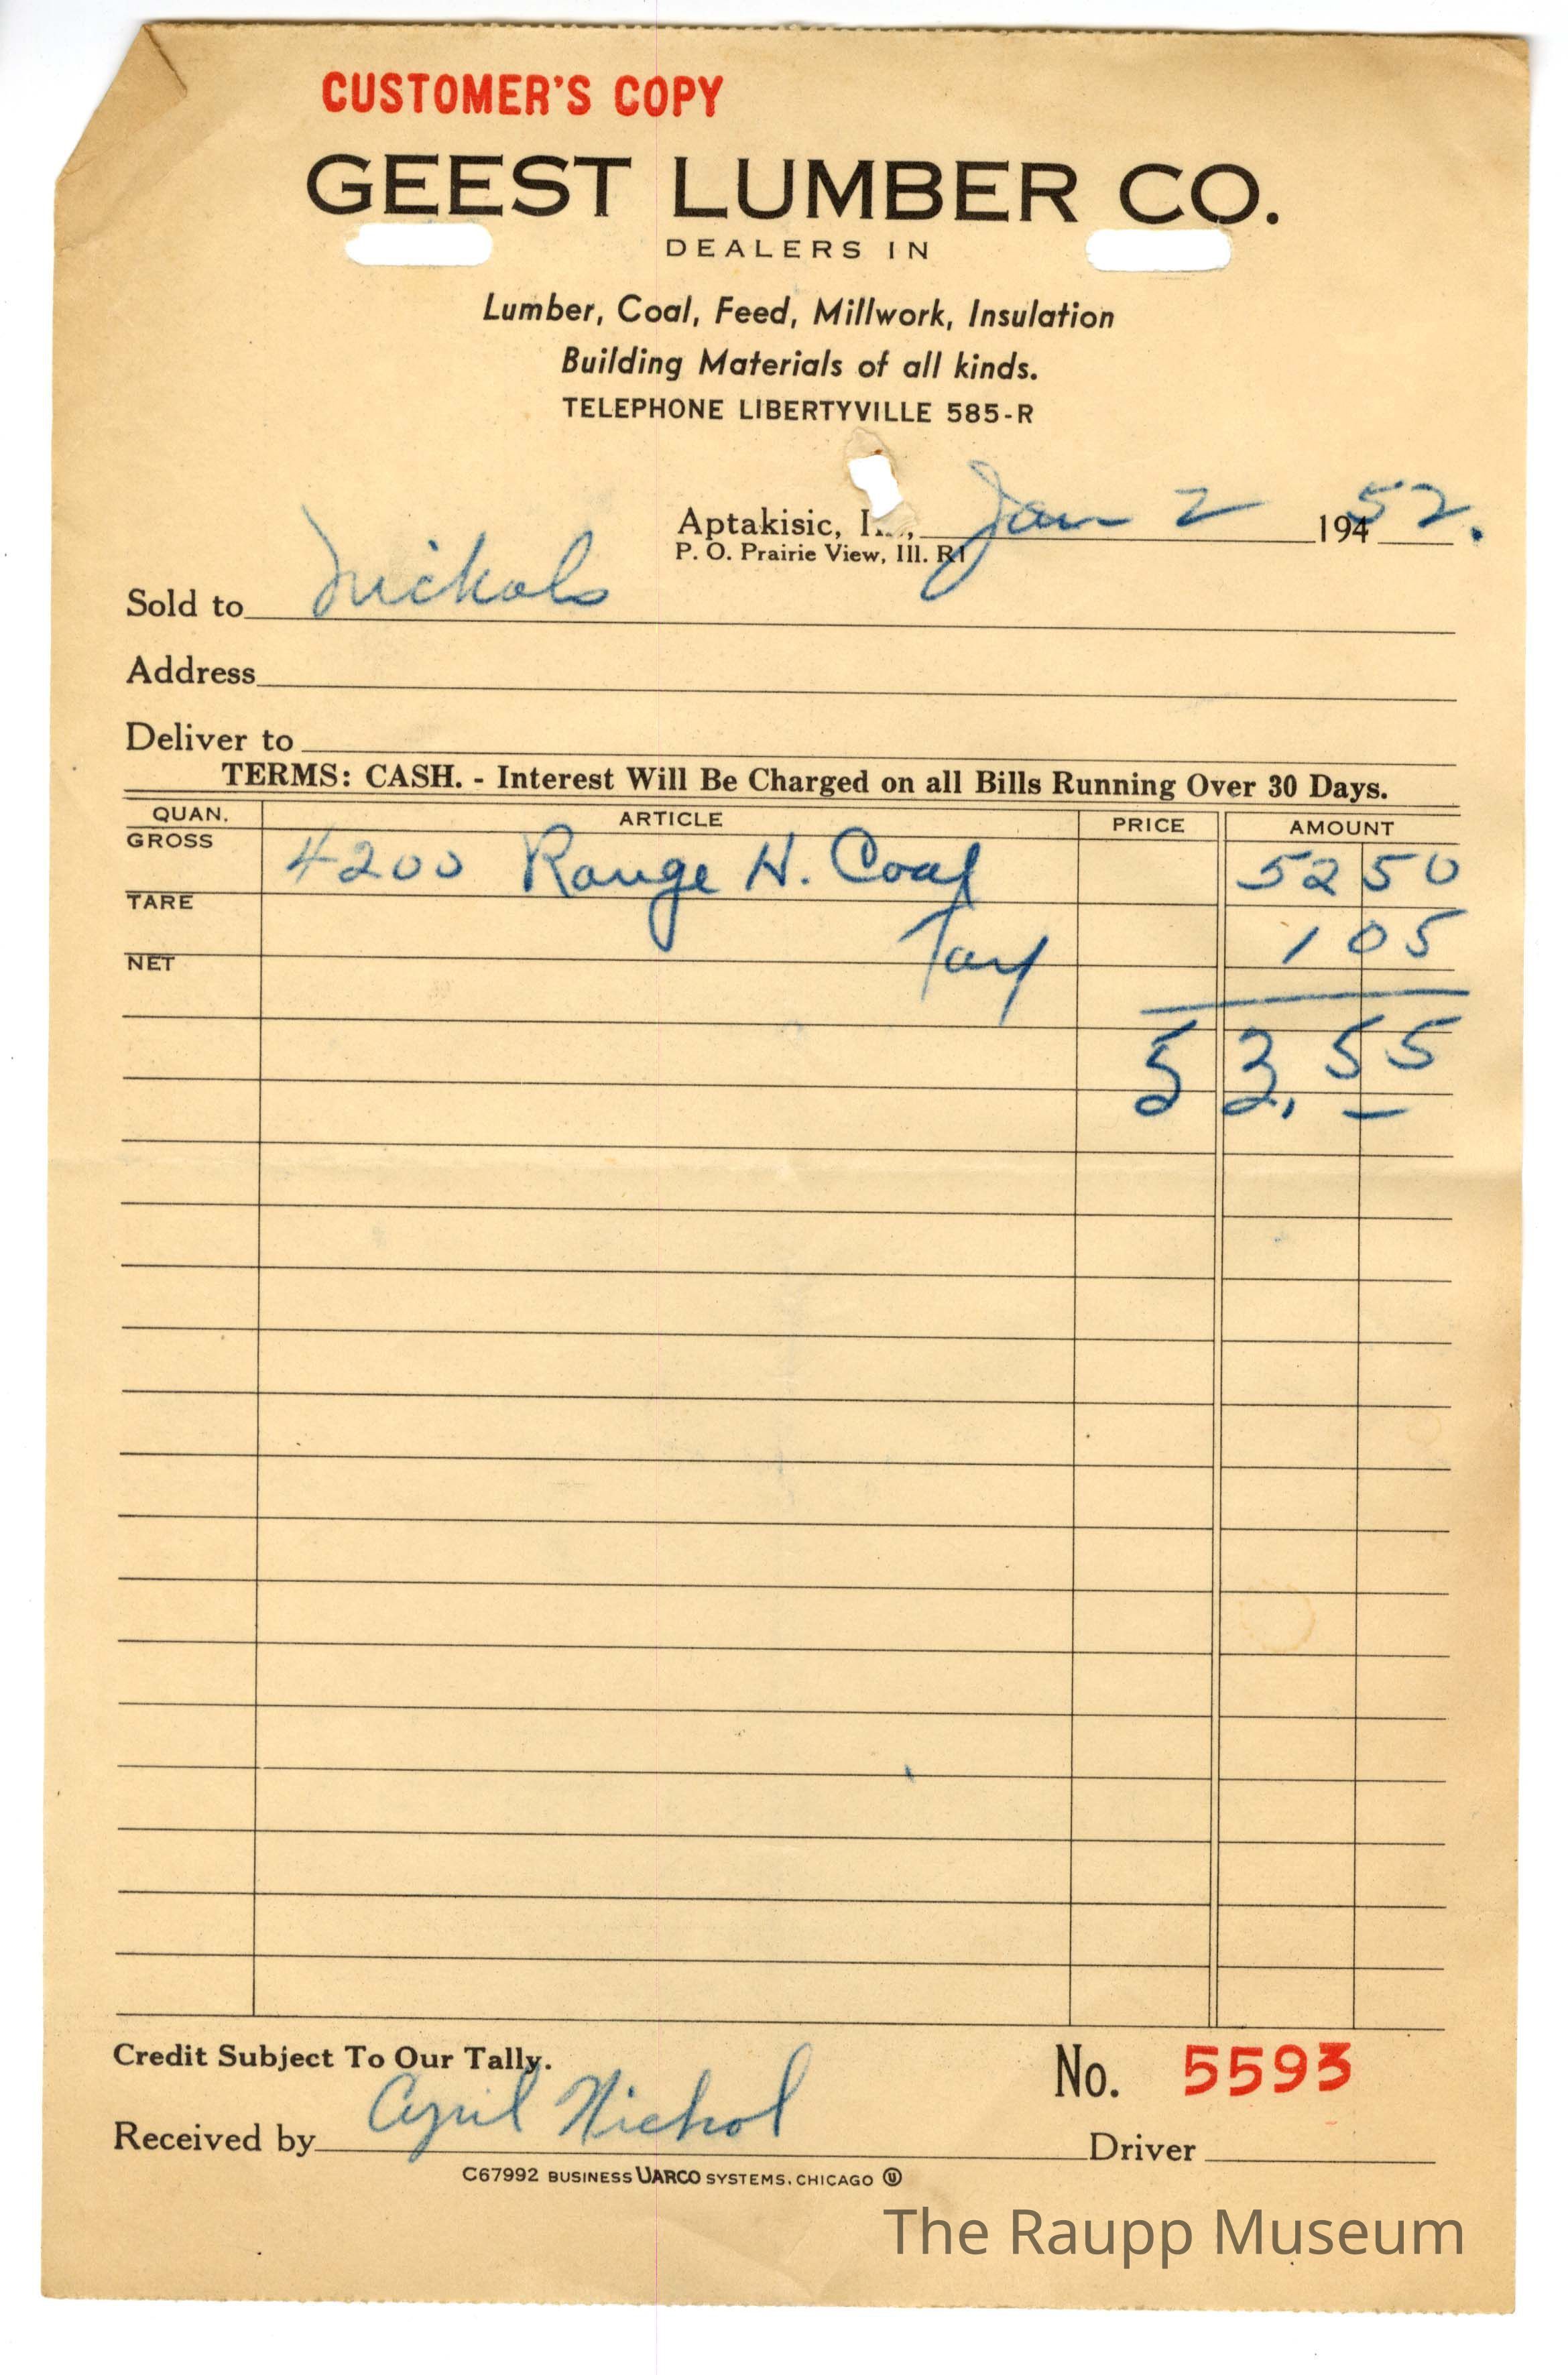 CUSTOMER'S COPY
GEEST LUMBER CO.
DEALERS IN
Lumber, Coal, Feed, Millwork, Insulation
Building Materials of all kinds.
TELEPHONE LIBERTYVILLE 585-R
Aptakisic, Jan 2 194 52.
P. O. Prairie View, Ill. R1
Sold to Nichols
Address
Deliver to
TERMS: CASH. - Interest Will Be Charged on all Bills Running Over 30 Days.
QUAN. ARTICLE PRICE AMOUNT
GROSS 4200 Range H. Coal 52 50
TARE Tax 1 05
NET
53.55
Credit Subject To Our Tally.
No. 5593
Received by Cyril Nichol Driver
C67992 BUSINESS UARCO SYSTEMS. CHICAGO U
The Raupp Museum